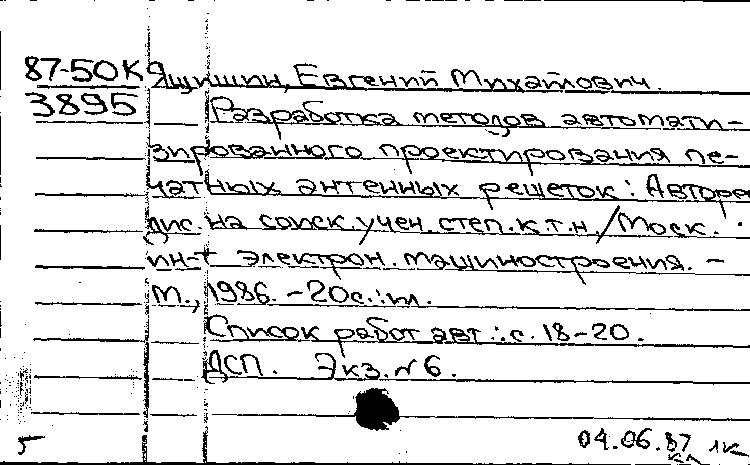 87-50К Ящишин, Евгений Михайлович.
3895 Разработка методов автомати-
зированного проектирования пе-
чатных антенных решеток: Авторе
дис. на соиск. учен. степ. к.т.н. / Моск.
ин-т электрон. машиностроения. -
М., 1986. - 20с.: ил.
Список работ авт.: с. 18-20.
ДСП. Экз. № 6.
5 04.06.87 1к